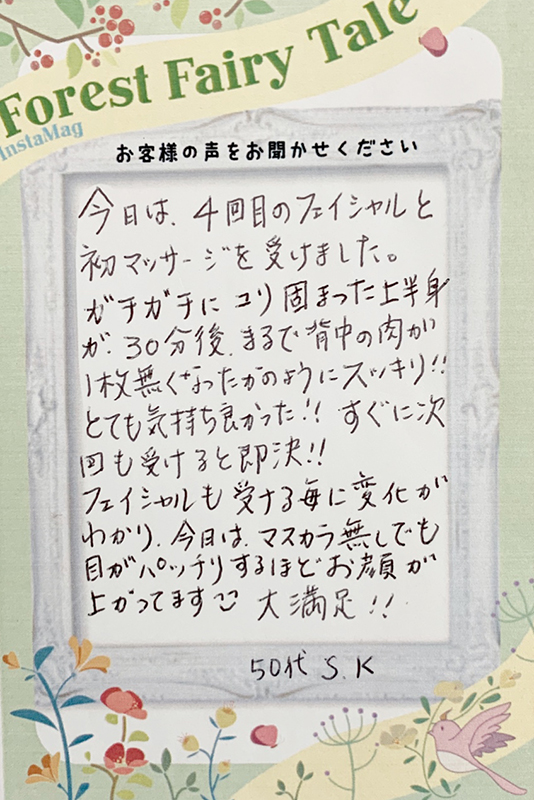 Forest Fairy Tale
InstaMag
お客様の声をお聞かせください
今日は、4回目のフェイシャルと
初マッサージを受けました。
ガチガチにコリ固まった上半身
が、30分後、まるで背中の肉が
1枚無くなったかのようにスッキリ!!
とても気持ち良かった!! すぐに次
回も受けると即決!!
フェイシャルも受ける毎に変化が
わかり、今日は、マスカラ無しでも
目がパッチリするほどお顔が
上がってます☺ 大満足!!
50代 S.K